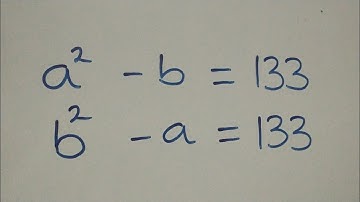 a² - b = 133
b² - a = 133